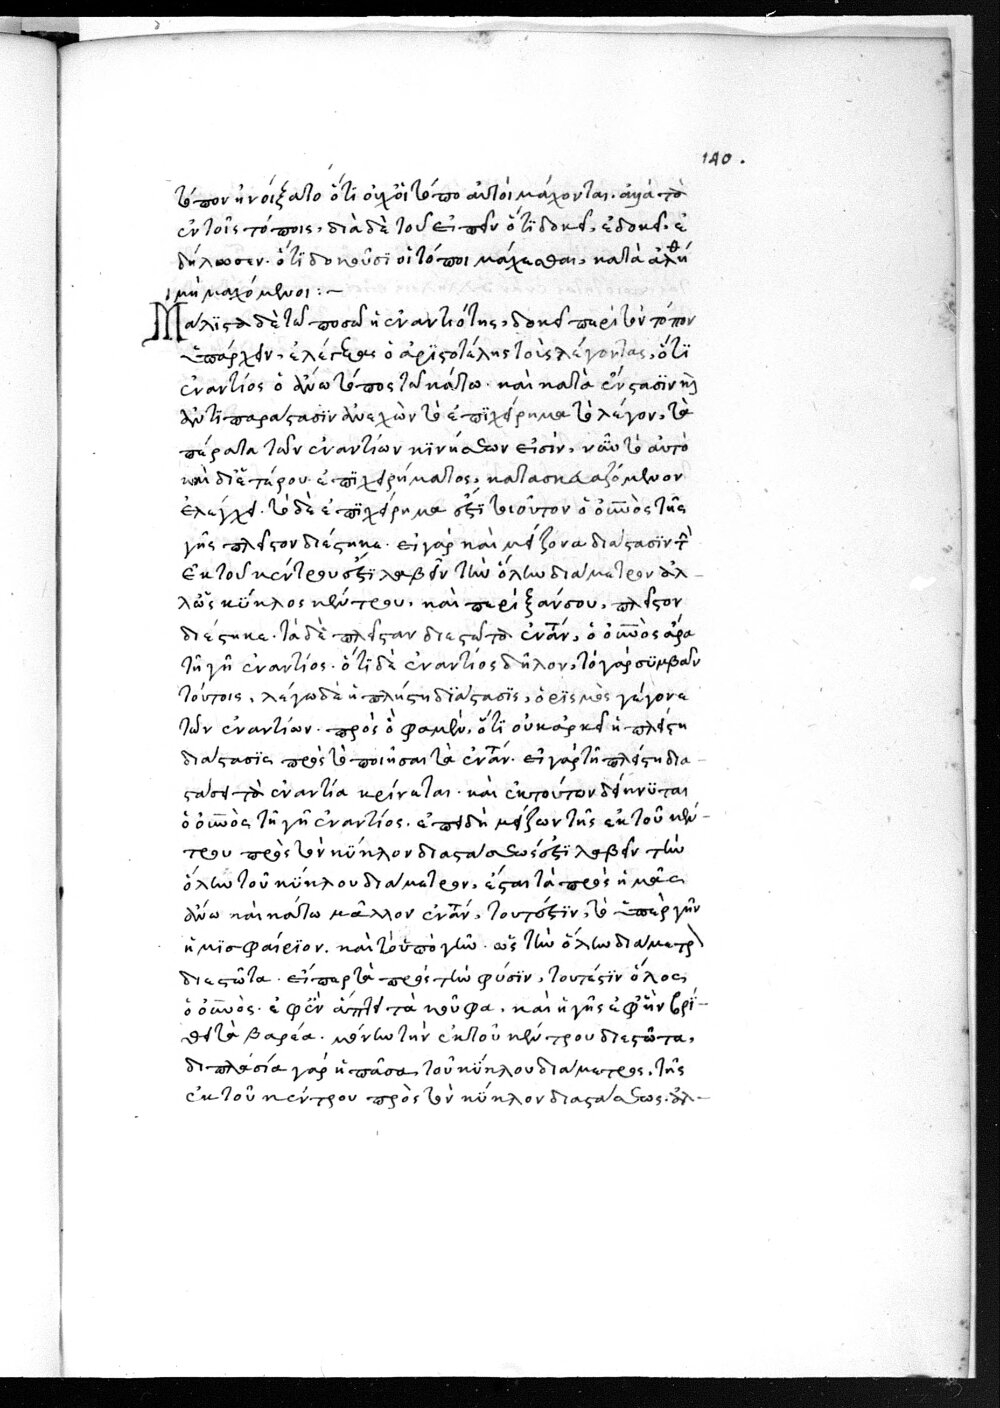 140.
τόπον ἠνοίξατο ὅτι οὐχ οἱ τόποι αὐτοὶ μάχονται. ἀλλὰ τὰ
ἐν τοῖς τόποις, διὰ δὲ τοῦ εἰπεῖν ὅτι δοκεῖ, ἐδοκεῖ, ἐ
δήλωσεν. ὅτι δοκοῦσι οἱ τόποι μάχεσθαι, κατὰ ἀλή
μὴ μαχόμενοι :~
Μάλιστα δὲ τῶ ποσῶ ἡ ἐναντιότης, δοκεῖ περὶ τὸν τόπον
ὑπάρχειν, ἐλέγξας ὁ ἀριστοτέλης τοὺς λέγοντας, ὅτι
ἐναντίος ὁ ἄνω τόπος τῶ κάτω. καὶ κατὰ ἔνστασιν κỳ
ἀντιπαράστασιν ἀνελὼν τὸ ἐπιχείρημα τὸ λέγον, τὰ
πέρατα τῶν ἐναντίων κινήσεων εἰσὶν, νῦν τὸ αὐτὸ
καὶ δι' ἑτέρου ἐπιχειρήματος, κατασκευαζόμενον
ἐλέγχει. τὸ δὲ ἐπιχείρημα ἐστὶ τοιοῦτον ὁ οὐνος τῆς
γῆς πλεῖστον διέστηκε. εἰ γὰρ καὶ μείζονα διάστασιν τ
ἐκ τοῦ κέντρου ἐστὶ λαβεῖν τὴν ὅλην διάμετρον ἀλ-
λῶς κύκλος κέντρου, καὶ πέριξ αὐσου, πλεῖστον
διέστηκε. τὰ δὲ πλεῖσταν διεστῶτα ἐναν, ὁ οὐνος ἄρα
τῆ γῆ ἐναντίος. ὅτι δὲ ἐναντίος δῆλον, τὸ γὰρ συμβὰν
τούτοις, λέγω δὲ ἡ πλείστη διάστασις, ὁρισμὸς γέγονε
τῶν ἐναντίων. πρὸς ὃ φαμὲν, ὅτι οὐκ ἀρκεῖ ἡ πλείστη
διάστασις πρὸς τὸ ποιῆσαι τὰ ἐναν. εἰ γὰρ τῆ πλείστη δια-
στάσει τὰ ἐναντία κρίνεται. καὶ ἐκ τούτων δείκνυται
ὁ οὐνος τῆ γῆ ἐναντίος. ἐπειδὴ μείζων τῆς ἐκ τοῦ κέν-
τρου πρὸς τὸν κύκλον διαστάσεως ἐστὶ λαβεῖν τὴν
ὅλην τοῦ κύκλου διάμετρον, ἔσται τὰ πρὸς ἡμᾶς
ἄνω καὶ κάτω μᾶλλον ἐναν, τουτέστιν, τὸ ὑπὲρ γῆν
ἡμισφαίριον. καὶ τὸ ὑπὸ γῆν. ὡς τὴν ὅλην διάμετρ
διεστῶτα. εἴπερ τὰ πρὸς τὴν φύσιν, τουτέστιν ὅλος
ὁ οὐνος. ἐφ' ὃν ἄπει τὰ κοῦφα, καὶ ἡ γῆς ἐφ' ἣν βρί-
θει τὰ βαρέα. μόνην τὴν ἐκ τοῦ κέντρου διεστῶτα,
διπλασία γὰρ ἡ πᾶσα τοῦ κύκλου διάμετρος, τῆς
ἐκ τοῦ κέντρου πρὸς τὸν κύκλον διαστάσεως. ἀλ-